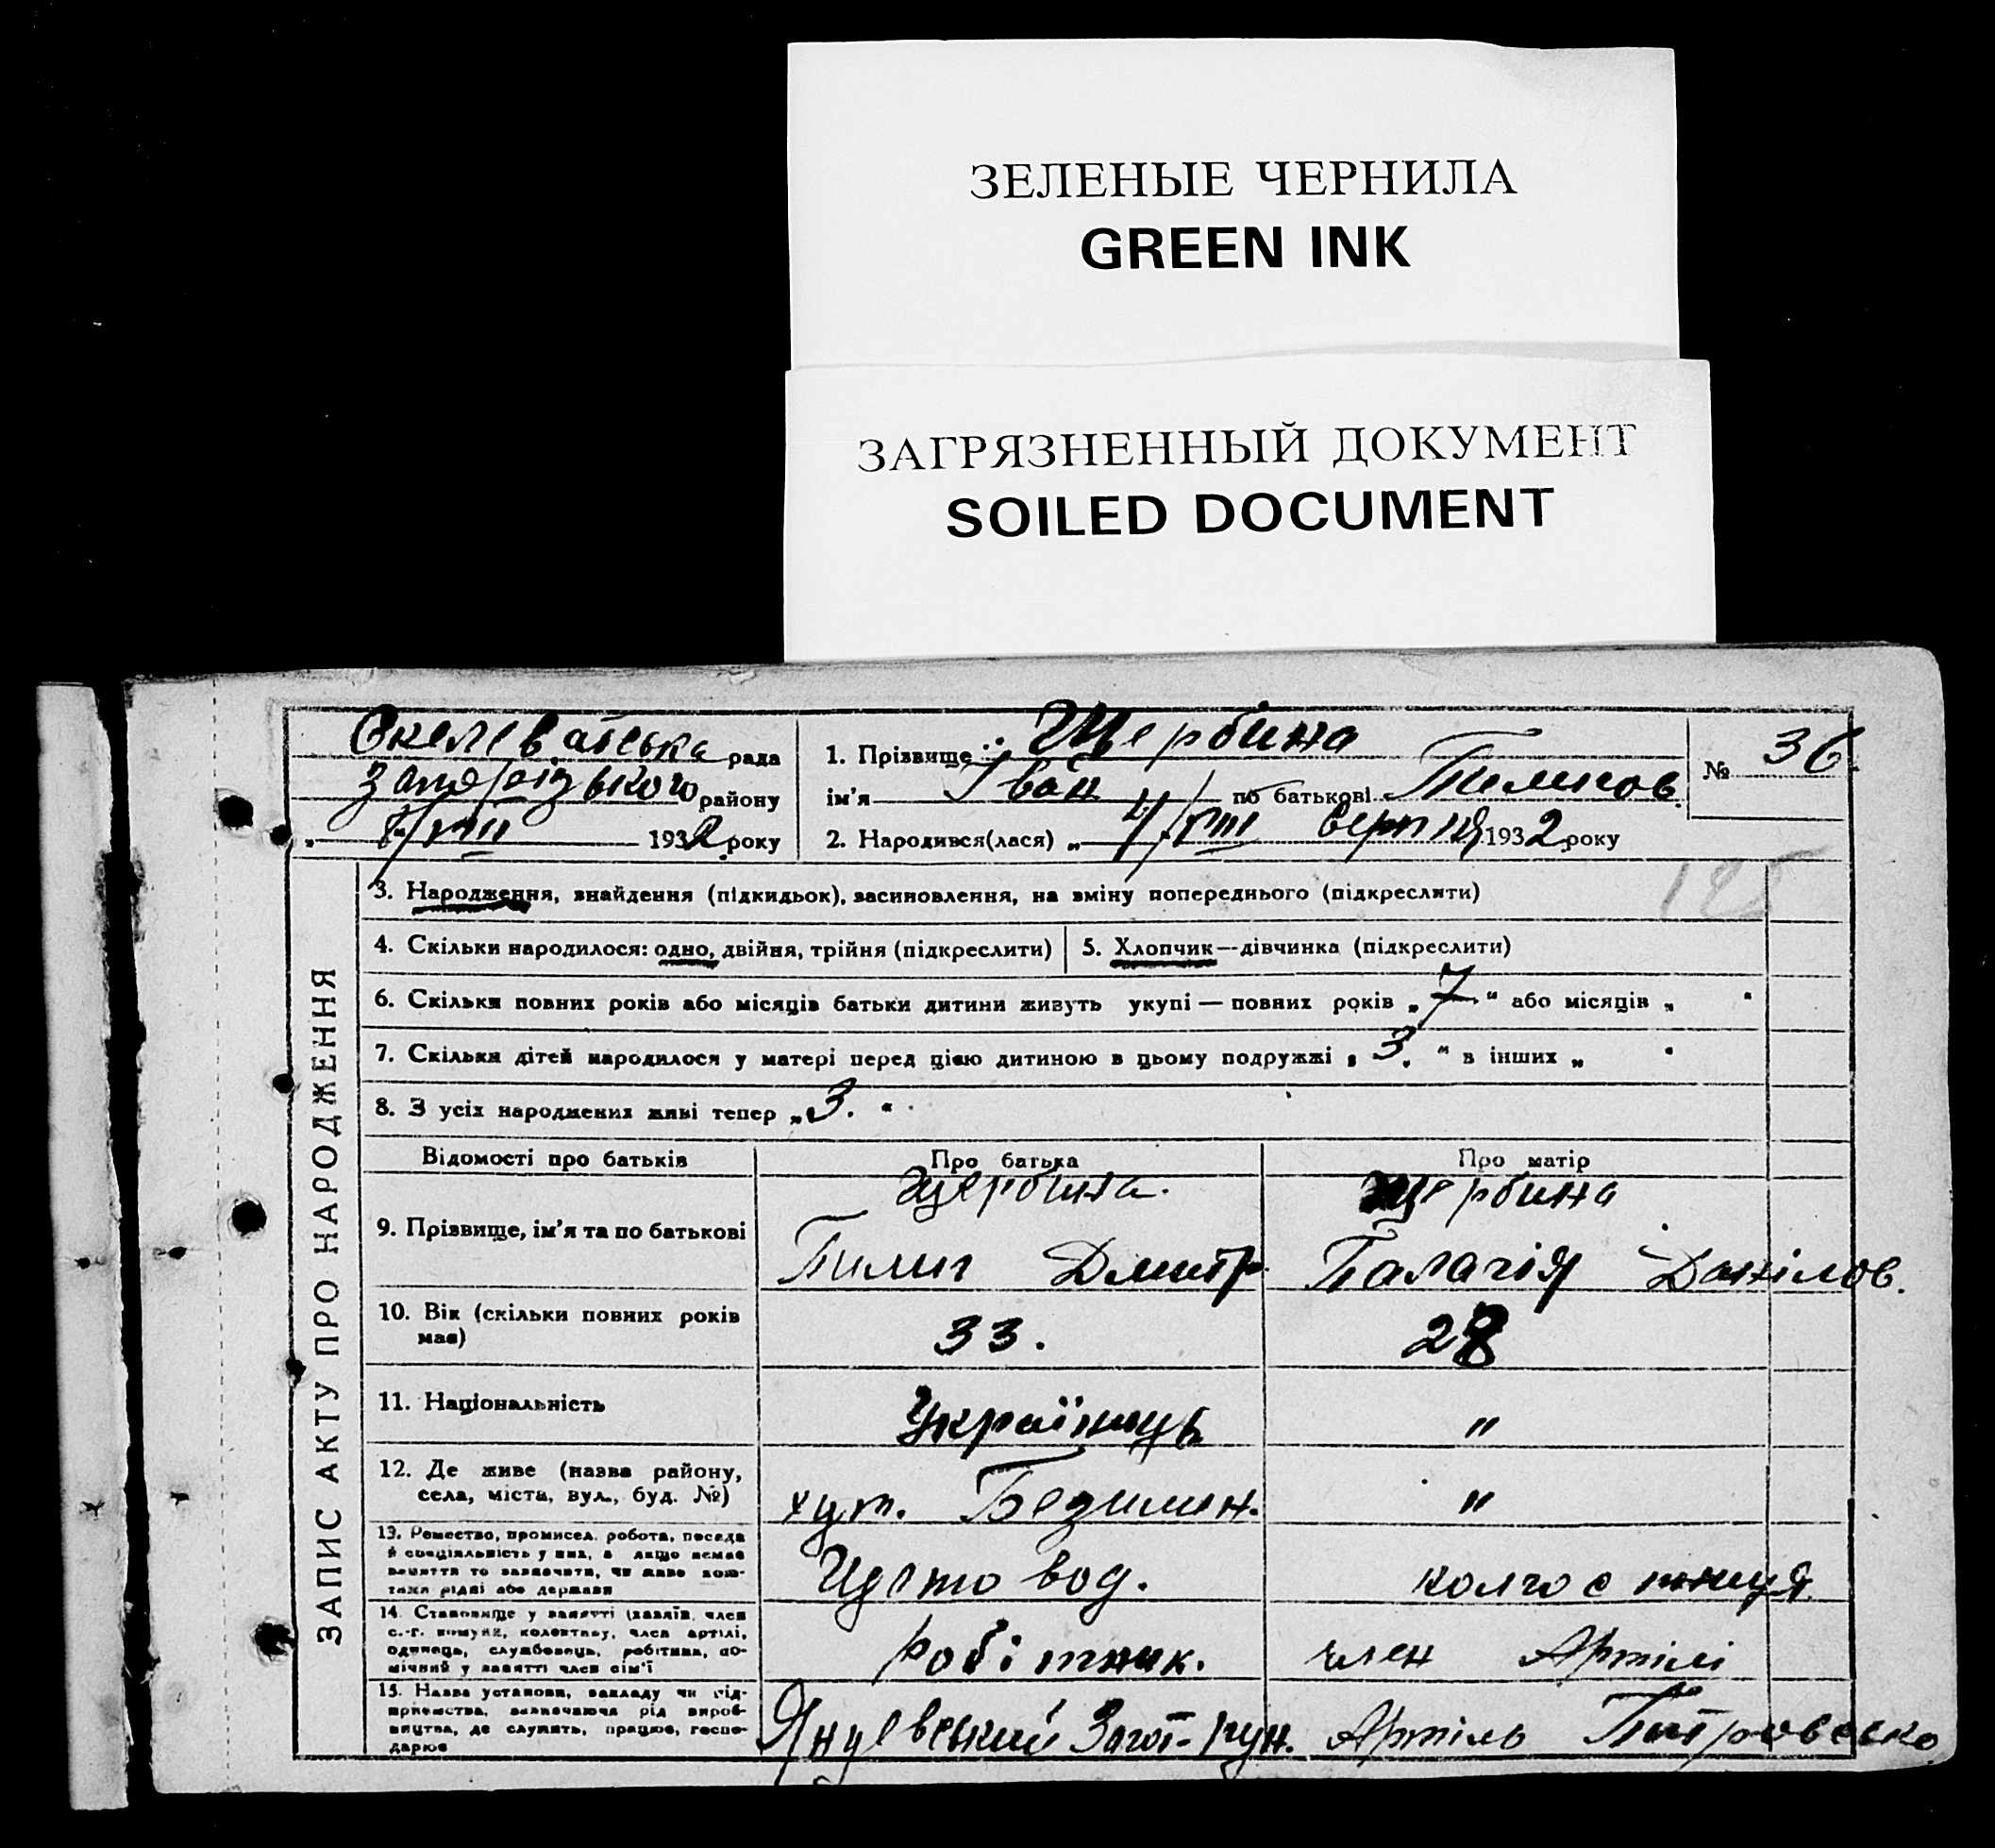 ЗЕЛЕНЫЕ ЧЕРНИЛА
GREEN INK
ЗАГРЯЗНЕННЫЙ ДОКУМЕНТ
SOILED DOCUMENT
рада
району
VIII 1932 року
1. Прізвище Щербина
ім'я Іван по батькові
2. Народився(лася) „ 4/VIII серпня 1932 року
№ 36
ЗАПИС АКТУ ПРО НАРОДЖЕННЯ
3. Народження, знайдення (підкидьок), засиновлення, на зміну попереднього (підкреслити)
4. Скільки народилося: одно, двійня, трійня (підкреслити) 5. Хлопчик—дівчинка (підкреслити)
6. Скільки повних років або місяців батьки дитини живуть укупі — повних років „ 7 “ або місяців „ “
7. Скільки дітей народилося у матері перед цією дитиною в цьому подружжі „ 3. “ в інших „ “
8. З усіх народжених живі тепер „ 3. “
Відомості про батьків Про батька Про матір
Щербина. Щербина
9. Прізвище, ім'я та по батькові
Дмитр. Палагія Данілов.
10. Вік (скільки повних років має) 33. 28
11. Національність Українець "
12. Де живе (назва району, села, міста, вул., буд. №) хут. "
13. Ремество, промисел, робота, посада й спеціяльність у них, а якщо немає заняття то зазначити, чи живе коштами рідні або держави
колгоспниця
14. Становище у занятті (хазяїн, член с.-г. комуни, колективу, член артілі, одинець, службовець, робітник, помічний у занятті член сім'ї
робітник. член Артілі
15. Назва установи, закладу чи підприємства, зазначаючи рід виробництва, де служить, працює, господарює
Артіль